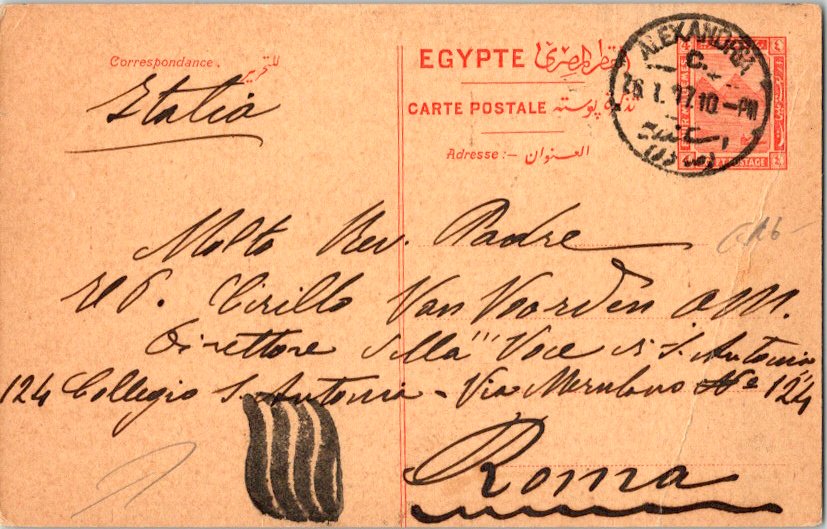 Correspondance.
للتحرير
Italia
EGYPTE القطر المصرى
CARTE POSTALE تذكرة پوسته
Adresse :— العنوان
ALEXANDRIA
C
26.I.17.10-PM
EGYPT POSTAGE
Molto Rev. Padre
P. Cirillo Van Noorden OM.
Direttore della "Voce di S. Antonio"
124 Collegio S. Antonio - Via Merulana No 124
Roma